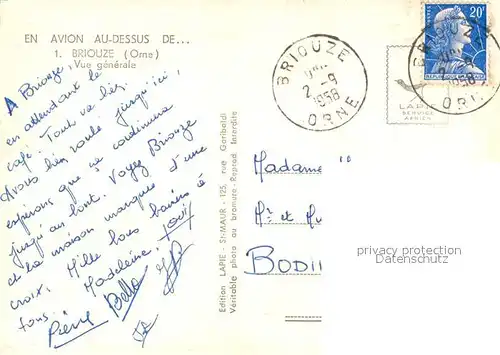 EN AVION AU-DESSUS DE...
1. BRIOUZE (Orne)
Vue générale
A Briouze,
en attendant le
café. Tout va bien,
Avons bien roulé jusqu'ici,
espérons que ça continuera
jusqu'au bout. Voyez Briouze
et la maison marquée d'une
croix. Mille bons baisers à
tous. Madeleine.
Pierre
Edition LAPIE - ST-MAUR - 125, rue Garibaldi
Véritable photo au bromure - Reprod. Interdite
BRIOUZE
2-9
1958
ORNE
20F
LAPIE
SERVICE
AÉRIEN
BRIOUZE
1958
ORNE
Madame
Mr et
BODI
privacy protection
Datenschutz